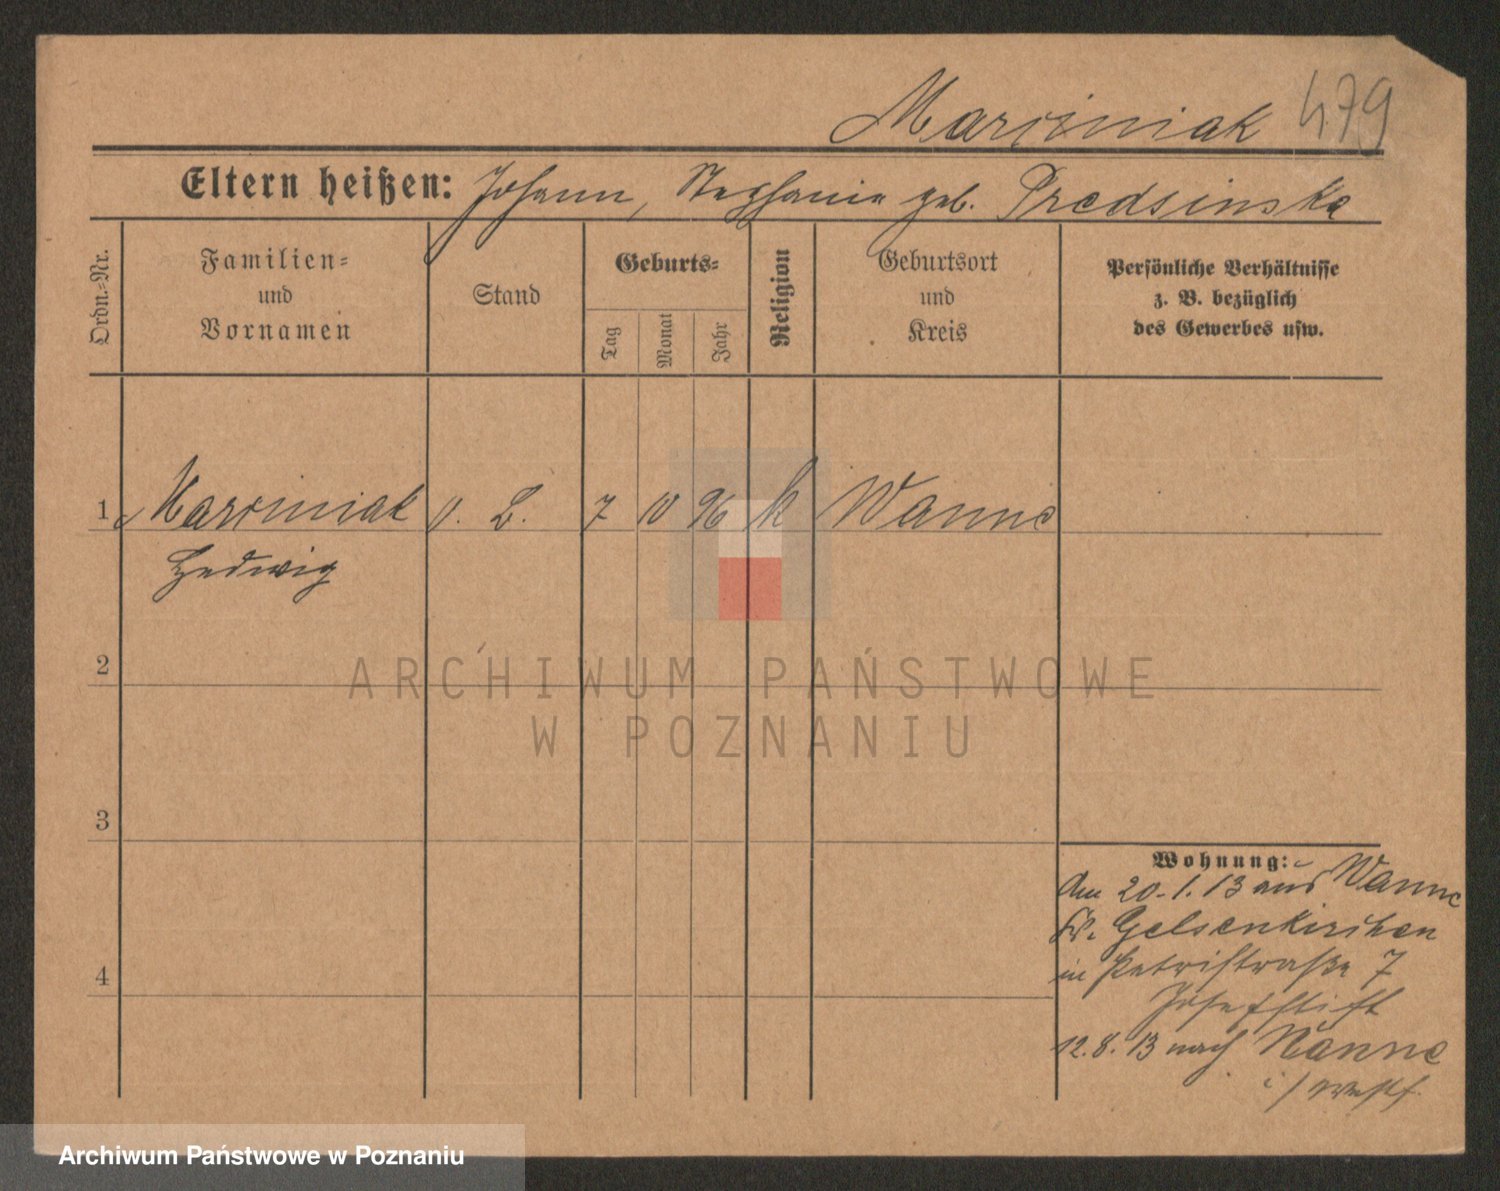 Marciniak 479
Eltern heißen: Johann, Stephanie geb. Predsinska
Ordn.-Nr.
Familien-
und
Vornamen
Stand
Geburts-
Tag
Monat
Jahr
Religion
Geburtsort
und
Kreis
Persönliche Verhältnisse
z. B. bezüglich
des Gewerbes usw.
1 Marciniak o. B. 7 10 96 k Wanne
Hedwig
2
ARCHIWUM PAŃSTWOWE
W POZNANIU
3
Wohnung:
den 20.1.13 aus Wanne
Kr. Gelsenkirchen
in Petristraße 7
4
Josefstift
12.8.13 nach Wanne
i/Westf.
Archiwum Państwowe w Poznaniu